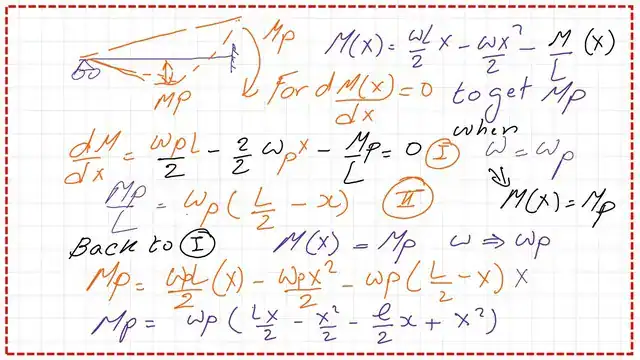 Mp
M(x) = ωL/2 x - ωx²/2 - M/L (x)
Mp
For dM(x)/dx = 0 to get Mp
when
dM/dx = ωpL/2 - 2/2 ωp x - Mp/L = 0 (I) ω = ωp
Mp/L = ωp (L/2 - x) (II) M(x) = Mp
Back to (I) M(x) = Mp ω ⇒ ωp
Mp = ωpL/2 (x) - ωpx²/2 - ωp (L/2 - x) x
Mp = ωp (Lx/2 - x²/2 - l/2 x + x²)